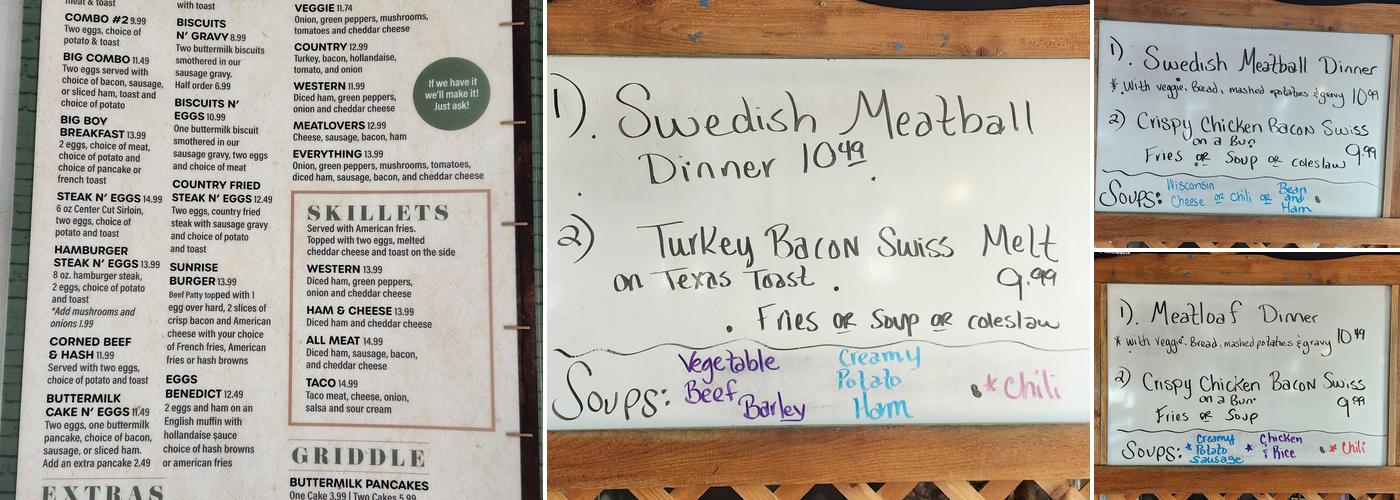 meat & toast
COMBO #2 9.99
Two eggs, choice of
potato & toast
BIG COMBO 11.49
Two eggs served with
choice of bacon, sausage,
or sliced ham, toast and
choice of potato
BIG BOY
BREAKFAST 13.99
2 eggs, choice of meat,
choice of potato and
choice of pancake or
french toast
STEAK N' EGGS 14.99
6 oz Center Cut Sirloin,
two eggs, choice of
potato and toast
HAMBURGER
STEAK N' EGGS 13.99
8 oz. hamburger steak,
2 eggs, choice of potato
and toast
*Add mushrooms and
onions 1.99
CORNED BEEF
& HASH 11.99
Served with two eggs,
choice of potato and toast
BUTTERMILK
CAKE N' EGGS 11.49
Two eggs, one buttermilk
pancake, choice of bacon,
sausage, or sliced ham.
Add an extra pancake 2.49
EXTRAS
with toast
BISCUITS
N' GRAVY 8.99
Two buttermilk biscuits
smothered in our
sausage gravy.
Half order 6.99
BISCUITS N'
EGGS 10.99
One buttermilk biscuit
smothered in our
sausage gravy, two eggs
and choice of meat
COUNTRY FRIED
STEAK N' EGGS 12.49
Two eggs, country fried
steak with sausage gravy
and choice of potato
and toast
SUNRISE
BURGER 13.99
Beef Patty topped with 1
egg over hard, 2 slices of
crisp bacon and American
cheese with your choice
of French fries, American
fries or hash browns
EGGS
BENEDICT 12.49
2 eggs and ham on an
English muffin with
hollandaise sauce
choice of hash browns
or american fries
VEGGIE 11.74
Onion, green peppers, mushrooms,
tomatoes and cheddar cheese
COUNTRY 12.99
Turkey, bacon, hollandaise,
tomato, and onion
WESTERN 11.99
Diced ham, green peppers,
onion and cheddar cheese
MEATLOVERS 12.99
Cheese, sausage, bacon, ham
EVERYTHING 13.99
Onion, green peppers, mushrooms, tomatoes,
diced ham, sausage, bacon, and cheddar cheese
If we have it
we'll make it!
Just ask!
SKILLETS
Served with American fries.
Topped with two eggs, melted
cheddar cheese and toast on the side
WESTERN 13.99
Diced ham, green peppers,
onion and cheddar cheese
HAM & CHEESE 13.99
Diced ham and cheddar cheese
ALL MEAT 14.99
Diced ham, sausage, bacon,
and cheddar cheese
TACO 14.99
Taco meat, cheese, onion,
salsa and sour cream
GRIDDLE
BUTTERMILK PANCAKES
One Cake 3.99 | Two Cakes 5.99
1). Swedish Meatball
Dinner 10 49
2) Turkey Bacon Swiss Melt
on Texas Toast. 9.99
. Fries or Soup or coleslaw
Soups: Vegetable Beef Barley Creamy Potato Ham * Chili
1). Swedish Meatball Dinner
* With veggie, Bread, mashed potatoes & gravy 10 99
2) Crispy Chicken Bacon Swiss
on a Bun
Fries or Soup or coleslaw 9.99
Soups: Wisconsin Cheese or Chili or Bean and Ham
1). Meatloaf Dinner
* with veggie. Bread, mashed potatoes & gravy 10 49
2) Crispy Chicken Bacon Swiss
on a Bun 9 99
Fries or Soup
Soups: * Creamy Potato Sausage * Chicken & Rice * Chili